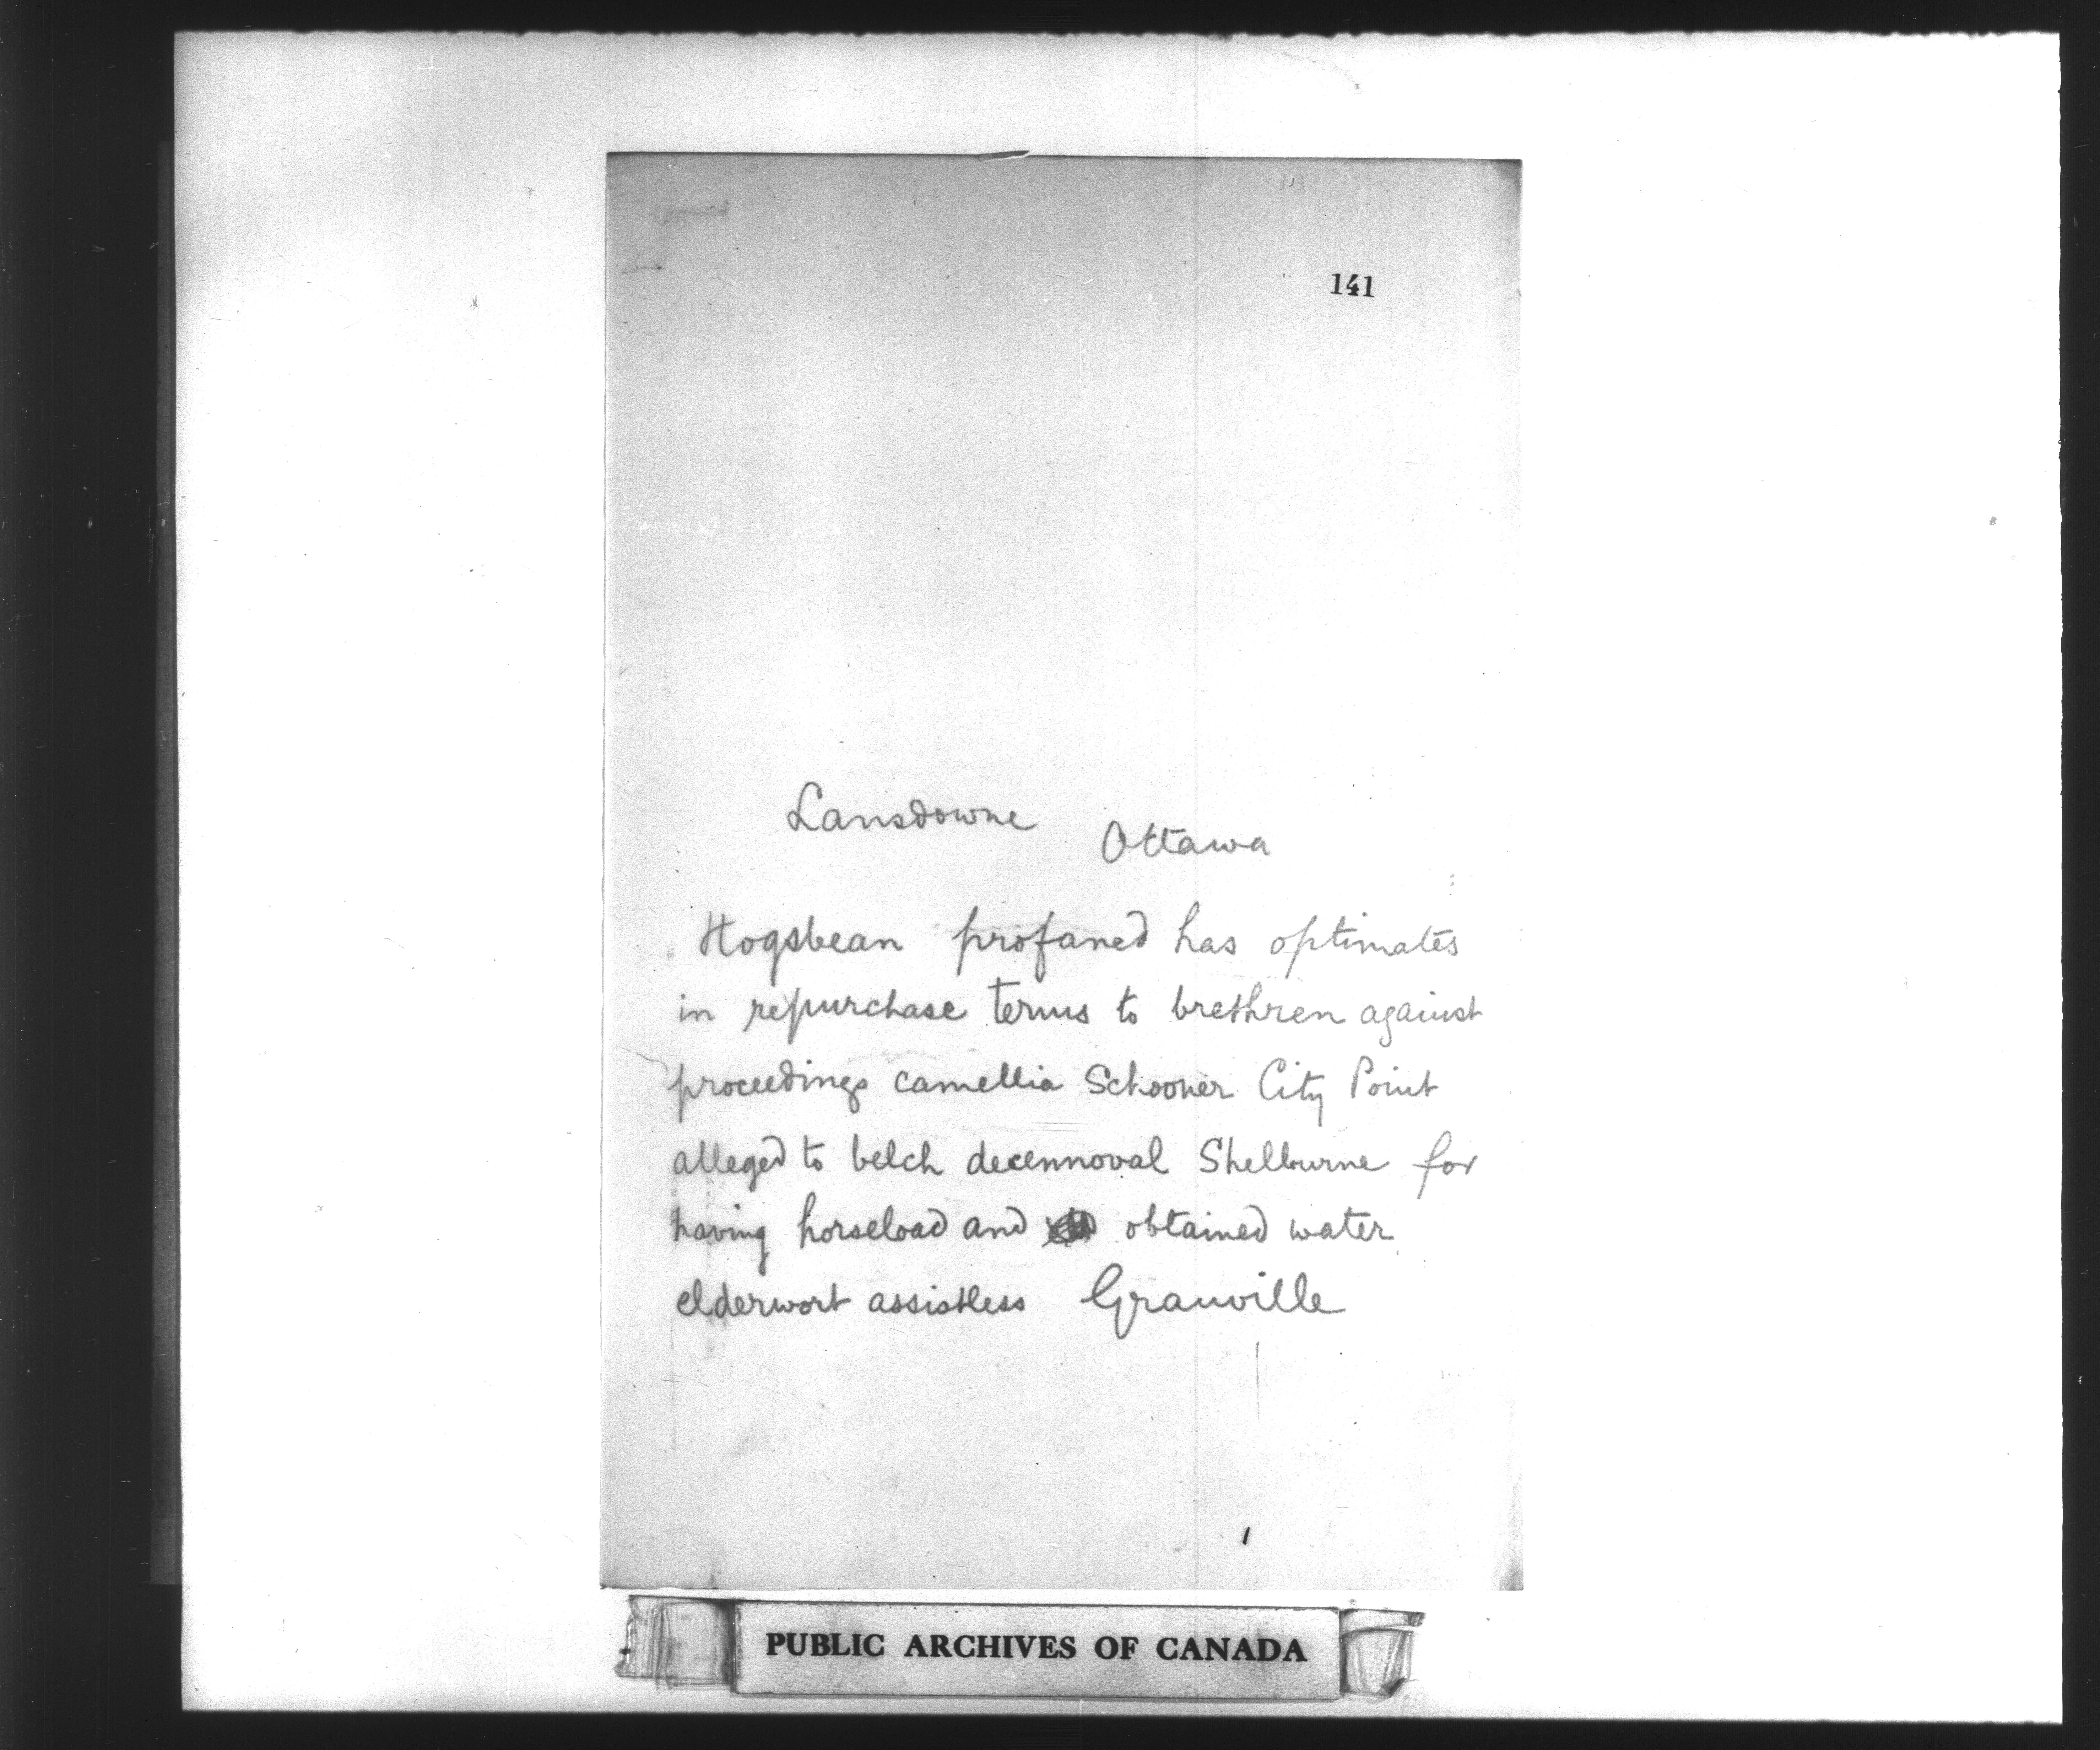 141
Lansdowne Ottawa
Hogsbean profaned has optimates
in repurchase terms to brethren against
proceedings camellia Schooner City Point
alleged to belch decennoval Shelburne for
having horseload and obtained water
elderwort assistless Granville
PUBLIC ARCHIVES OF CANADA